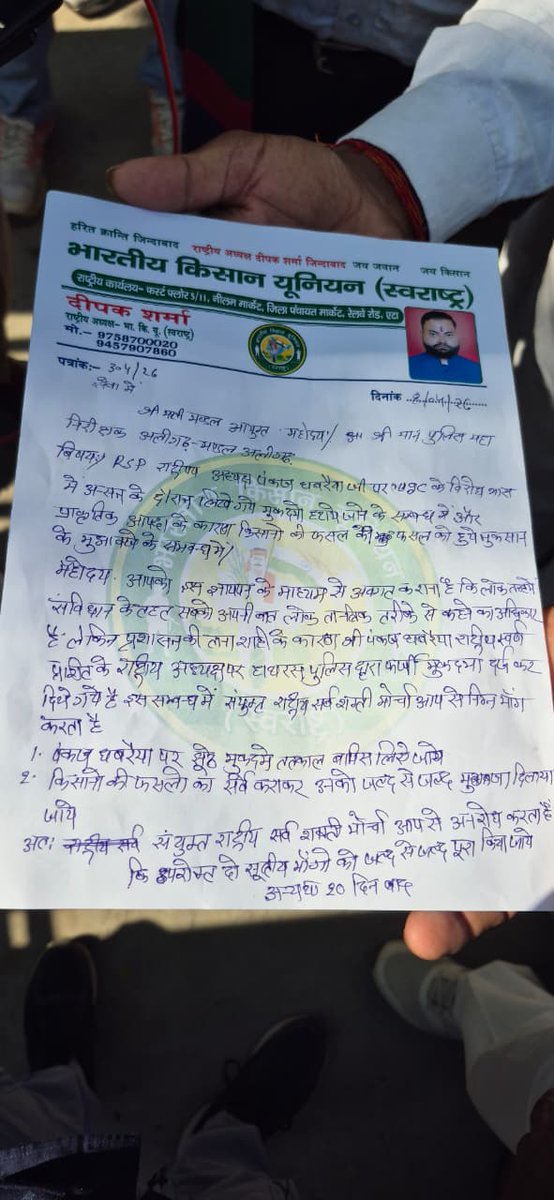 हरित क्रान्ति जिन्दाबाद राष्ट्रीय अध्यक्ष दीपक शर्मा जिन्दाबाद जय जवान जय किसान
भारतीय किसान यूनियन (स्वराष्ट्र)
राष्ट्रीय कार्यालय- फर्स्ट फ्लोर 5/11, नीलम मार्केट, जिला पंचायत मार्केट, रेलवे रोड, एटा
दीपक शर्मा
राष्ट्रीय अध्यक्ष- भा. कि. यू. (स्वराष्ट्र)
मो.- 9758700020
9457907860
पत्रांक:- 304/26
दिनांक
सेवा में
श्री मान पुलिस महा
निरीक्षक अलीगढ़-मण्डल अलीगढ़
विषय:/ RSP राष्ट्रीय अध्यक्ष पंकज धवरैया जी पर के विरोध
के दौरान लिखे गये मुकदमे हटाये जाने के सम्बन्ध में और
प्राकृतिक आपदा के कारण किसानो की फसल को हुये नुकसान
के मुआवजे के सम्बन्ध में/
महोदय. आपको इस ज्ञापन के माध्यम से अवगत कराना है कि
संविधान के तहत सबको अपनी बात लोक तान्त्रिक तरीके से कहने का अधिकार
है लेकिन प्रशासन की तानाशाही के कारण श्री पंकज धवरैया राष्ट्रीय
के राष्ट्रीय अध्यक्ष पर हाथरस पुलिस द्वारा फर्जी मुकदमा दर्ज कर
दिये गये है इस सम्बन्ध में संयुक्त राष्ट्रीय सर्व शक्ती मोर्चा आप से निम्न माँग
करता है
1. पंकज धवरैया पर झूठे मुकदमे तत्काल वापिस लिये जाये
2. किसानो की फसलो का सर्वे कराकर उनको जल्द से जल्द मुआवजा दिलाया
जाये
अतः संयुक्त राष्ट्रीय सर्व शक्ती मोर्चा आप से अनुरोध करता है
कि उपरोक्त दो सूत्रीय माँगो को जल्द से जल्द पूरा किया जाये
अन्यथा 20 दिन बाद